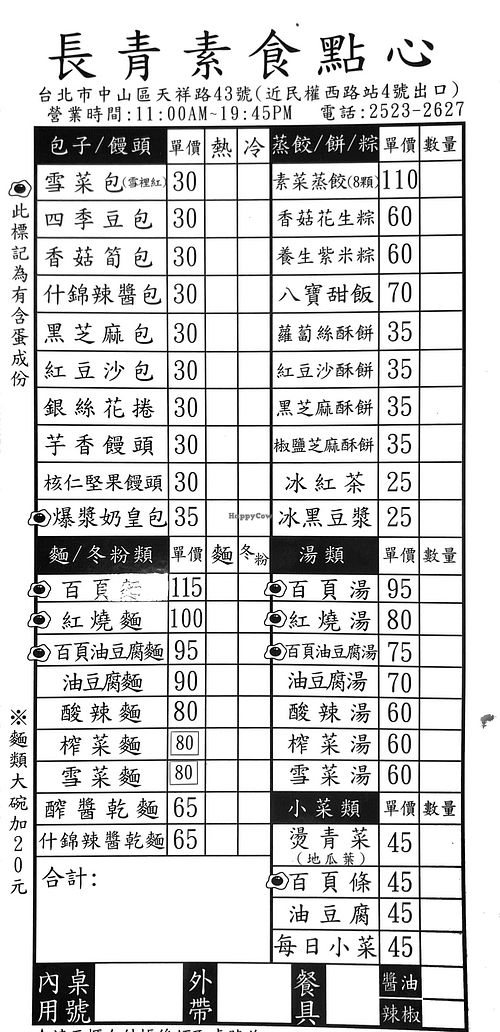 長青素食點心
台北市中山區天祥路43號(近民權西路站4號出口)
營業時間:11:00AM~19:45PM 電話:2523-2627
此標記為有含蛋成份
包子/饅頭 單價 熱 冷
雪菜包(雪裡紅) 30
四季豆包 30
香菇筍包 30
什錦辣醬包 30
黑芝麻包 30
紅豆沙包 30
銀絲花捲 30
芋香饅頭 30
核仁堅果饅頭 30
爆漿奶皇包 35
蒸餃/餅/粽 單價 數量
素菜蒸餃(8顆) 110
香菇花生粽 60
養生紫米粽 60
八寶甜飯 70
蘿蔔絲酥餅 35
紅豆沙酥餅 35
黑芝麻酥餅 35
椒鹽芝麻酥餅 35
冰紅茶 25
冰黑豆漿 25
HappyCow
麵/冬粉類 單價 麵 冬粉
百頁麵 115
紅燒麵 100
百頁油豆腐麵 95
油豆腐麵 90
酸辣麵 80
榨菜麵 80
雪菜麵 80
醡醬乾麵 65
什錦辣醬乾麵 65
※麵類大碗加20元
合計:
湯類 單價 數量
百頁湯 95
紅燒湯 80
百頁油豆腐湯 75
油豆腐湯 70
酸辣湯 60
榨菜湯 60
雪菜湯 60
小菜類 單價 數量
燙青菜(地瓜葉) 45
百頁條 45
油豆腐 45
每日小菜 45
內用 桌號 外帶 餐具 醬油
辣椒